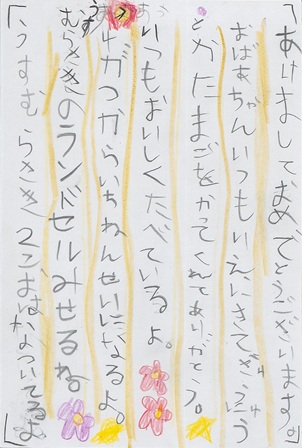 「あけましておめでとうございます。
おばあちゃんいつもいえにきてぎゅうにゅう
とかたまごをかってくれてありがとう。
いつもおいしくたべているよ。
4がつからいちねんせいになるよ。
うすむらさきのランドセルみせるね。
うすむらさき2こおはなついてるよ」